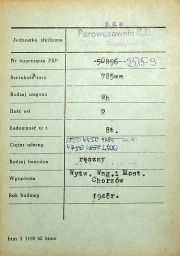 Jednostka służbowa
Parowozownia K.D.
Nr inwentarza PKP 50896 2515-9
Szerokość toru 785mm
Rodzaj wagonu Wh
Ilość osi 2
Ładowność w t 8t.
Ciężar własny
4750 4200
Rodzaj hamulca ręczny
Wytw. Wag.i Most.
Wytwórnia Chorzów
Rok budowy 1948r.